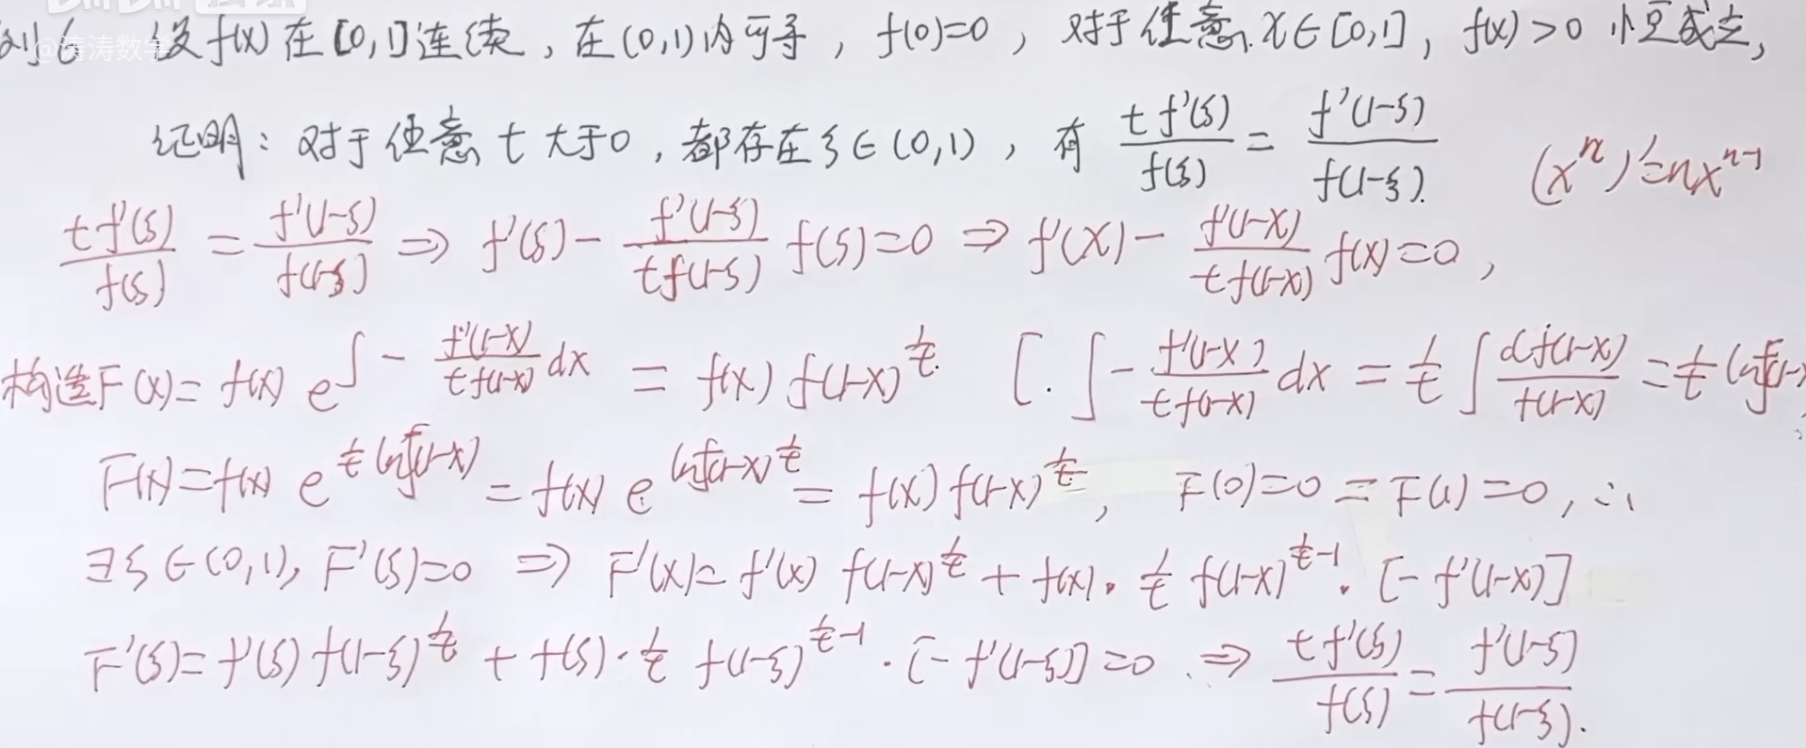 例6 设f(x)在[0,1]连续,在(0,1)内可导,f(0)=0,对于任意x∈[0,1],f(x)>0恒成立,
@涛涛数学
证明:对于任意t大于0,都存在ξ∈(0,1),有 tf'(ξ)/f(ξ) = f'(1-ξ)/f(1-ξ). (x^n)'=nx^{n-1}
tf'(ξ)/f(ξ) = f'(1-ξ)/f(1-ξ) ⇒ f'(ξ) - f'(1-ξ)/tf(1-ξ) f(ξ)=0 ⇒ f'(x) - f'(1-x)/tf(1-x) f(x)=0,
构造F(x)=f(x)e^{∫-f'(1-x)/tf(1-x) dx} = f(x)f(1-x)^{1/t}. [.∫-f'(1-x)/tf(1-x) dx = 1/t ∫df(1-x)/f(1-x) = 1/t lnf(1-x)
F(x)=f(x)e^{1/t lnf(1-x)} = f(x)e^{lnf(1-x)^{1/t}} = f(x)f(1-x)^{1/t}, F(0)=0=F(1)=0,∴
∃ξ∈(0,1), F'(ξ)=0 ⇒ F'(x)=f'(x)f(1-x)^{1/t}+f(x)·1/t f(1-x)^{1/t-1}·[-f'(1-x)]
F'(ξ)=f'(ξ)f(1-ξ)^{1/t}+f(ξ)·1/t f(1-ξ)^{1/t-1}·[-f'(1-ξ)]=0 ⇒ tf'(ξ)/f(ξ) = f'(1-ξ)/f(1-ξ).